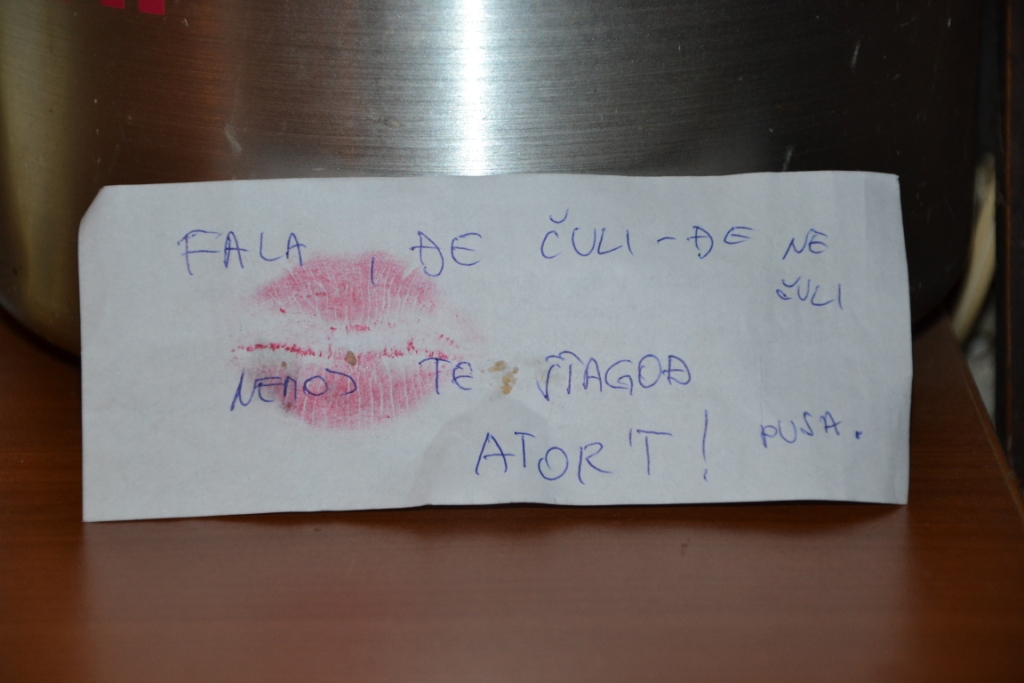 FALA, ĐE ČULI-ĐE NE
ČULI
NEMOJ TE ŠTAGOĐ
ATOR'T! PUSA.